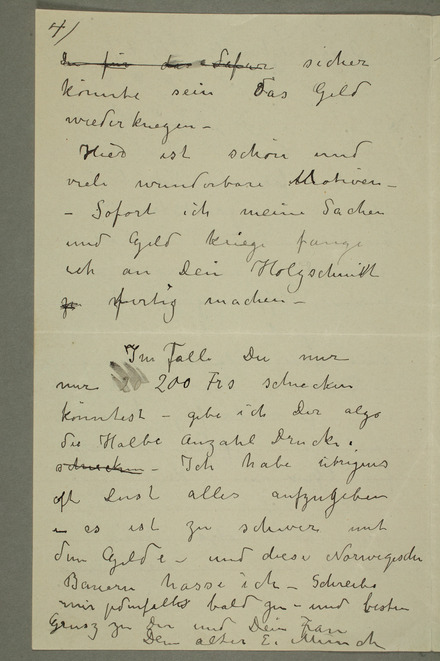 4/
Du für das sicher
könnte sein das Geld
wiederkriegen –
Hier ist schön und
viele wunderbare Motiven –
– Sofort ich meine Sachen
und Geld kriege fange
ich an dein Holzschnitt
fertig machen –
Im Falle Du nur
nur 200 Frs schecken
könntest – gebe ich Dir also
die Halbe Anzahl Drucke.
schecken – Ich habe übrigens
oft Lust alles aufzugeben
– es ist zu schwer mit
dem Gelde – und diese Norwegische
Bauern hasse ich – Schreibe
mir jedenfalls bald zu – und besten
Grusz zu Dir und Dein Frau
Dein alter E. Munch